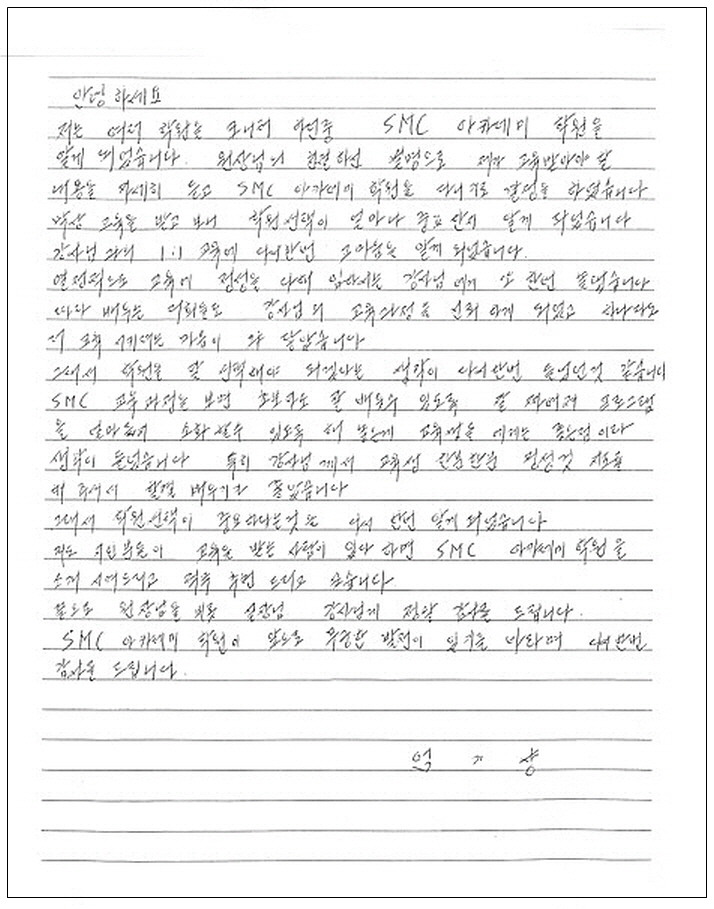 안녕하세요
저는 여러 학원을 모니터 하던중 SMC 아카데미 학원을
알게 되었습니다. 원장님의 친절하신 설명으로 제가 교육받아야 할
내용을 자세히 듣고 SMC 아카데미 학원을 다니기로 결정을 하였습니다
막상 교육을 받고 보니 학원선택이 얼마나 중요한지 알게 되었습니다
강사님과의 1:1 교육에 다시한번 고마움을 알게 되었습니다.
열정적으로 교육에 정성을 다해 임하시는 강사님에게 또 한번 놀랬습니다
따라 배우는 저희들도 강사님의 교육과정을 신뢰하게 되었고 하나라도
더 교육 시키려는 마음이 와 닿았습니다
그래서 학원을 잘 선택해야 되겠다는 생각이 다시한번 들었던것 같습니다
SMC 교육과정은 보면 초보자도 잘 배울수 있도록 잘 짜여져 프로그램
을 소화 할수 있도록 해 놓은게 교육생들 에게는 좋은점이라
생각이 들었습니다 특히 강사님께서 교육생 한분한분 정성껏 지도를
해 주셔서 한결 배우기가 좋았습니다
그래서 학원선택이 중요하다는것을 다시 한번 알게 되었습니다
저도 지인분들이 교육을 받는 사람이 있다 하면 SMC 아카데미 학원을
소개 시켜드리고 적극 추천 드리고 싶습니다
끝으로 원장님을 비롯 실장님 강사님께 정말 감사를 드립니다.
SMC 아카데미 학원이 앞으로 무궁한 발전이 있기를 바라며 다시한번
감사를 드립니다.